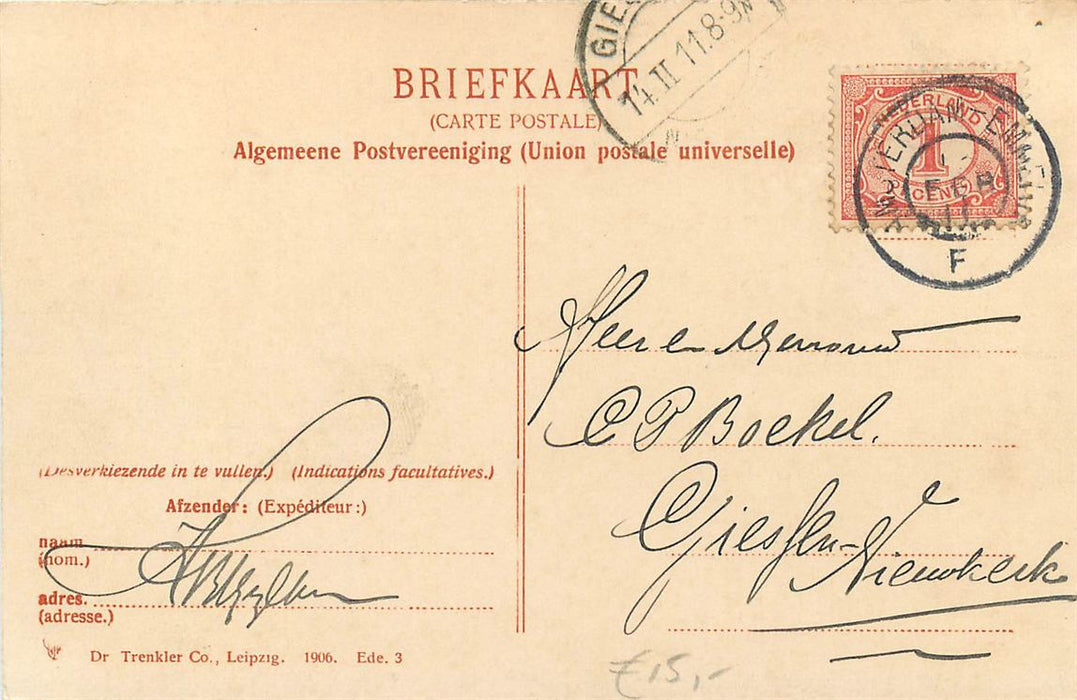 BRIEFKAART
(CARTE POSTALE)
Algemeene Postvereeniging (Union postale universelle)
14.II 11.8-9N
NEDERLAND
1
CENT
AMSTERDAM-EMMERIK
FEB
11
F
Heer en Mevrouw
C P Boekel.
Giessen-
Nieuwkerk
(Desverkiezende in te vullen.) (Indications facultatives.)
Afzender: (Expéditeur:)
naam
(nom.)
adres.
(adresse.)
Dr Trenkler Co., Leipzig. 1906. Ede. 3
£15,-